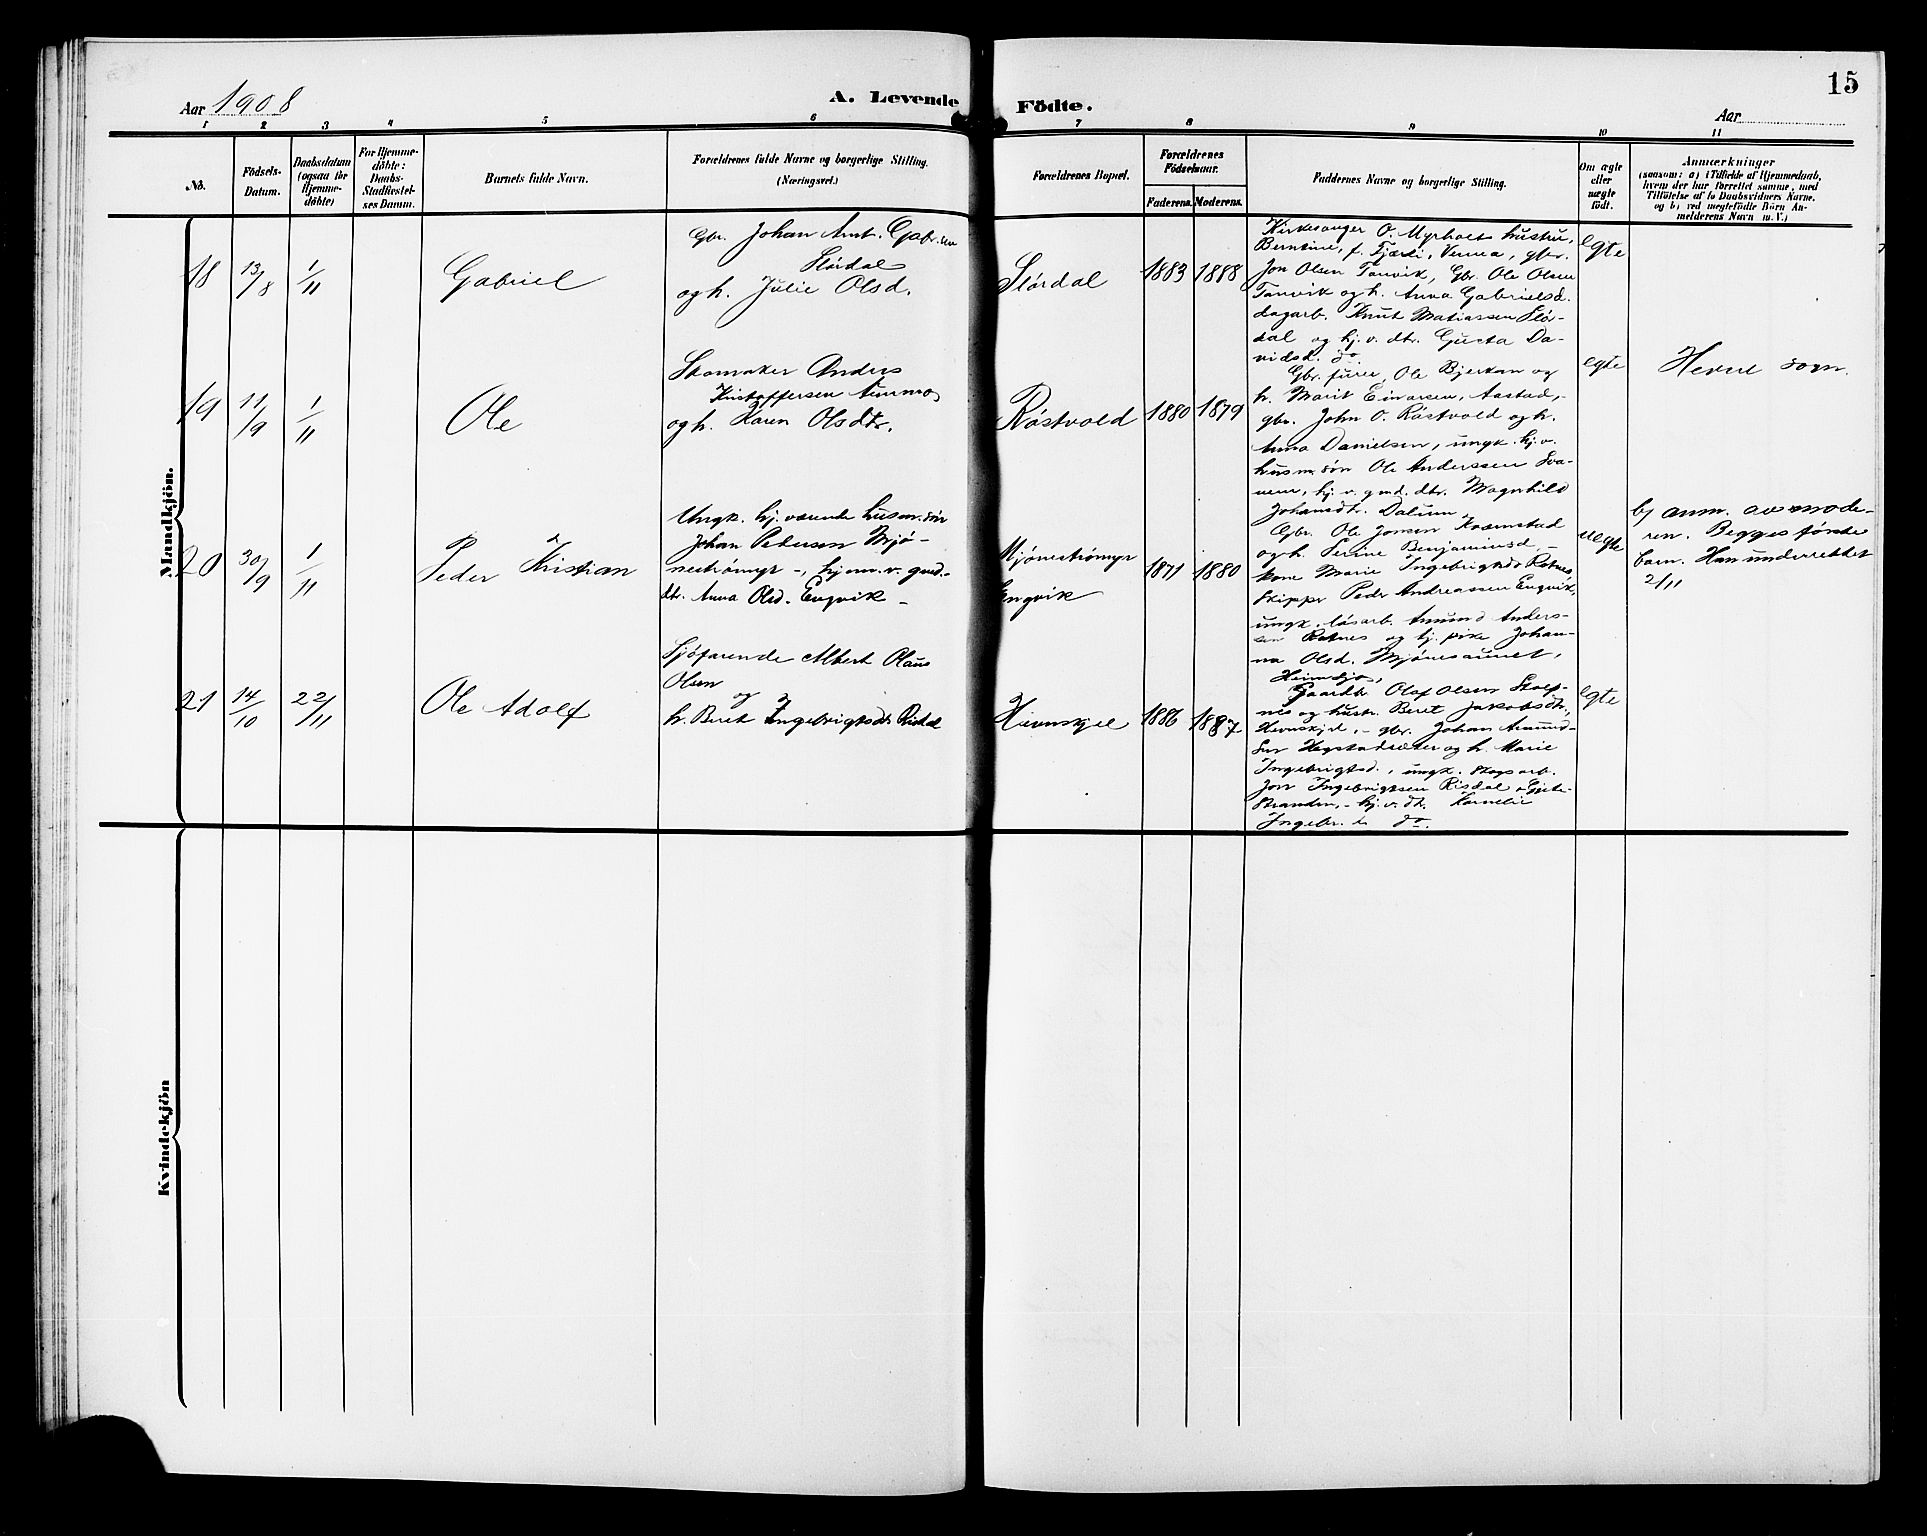 15
Aar 1908
A. Levende Födte.
Aar
1 2 3 4 5 6 7 8 9 10 11
No.
Födsels-
Datum.
Daabsdatum
(ogsaa for
Hjemme-
döbte)
For Hjemme-
döbte:
Daabs-
Stadfæstel-
ses Datum.
Barnets fulde Navn.
Forældrenes fulde Navne og borgerlige Stilling.
(Næringsvei.)
Forældrenes Bopæl.
Forældrenes
Födselsaar.
Faderens. Moderens.
Faddernes Navne og borgerlige Stilling.
Om ægte
eller
uægte
födt.
Anmærkninger
(saasom: a) i Tilfælde af Hjemmedaab,
hvem der har forrettet samme, med
Tilföielse af to Daabsvidners Navne.
og b) ved uægtefödte Börn An-
melderens Navn m. V.)
Mandkjön.
18
13/8
1/11
Gabriel
Gbr. Johan Arnt. Gabr.sen
Slørdal
og h. Julie Olsd.
Slørdal
1883 1888
Kirkesanger O. Myrholts hustru,
Berntine, f. Fjærli, Vennea, gbr.
Jon Olsen Tanvik, Gbr. Ole Olsen
Tanvik og h. Anna Gabrielsd.
dagarb. Knut Matiassen Slør-
dal og hj.v. dtr. Gusta Da-
vidsd. do
egte
19
11/9
1/11
Ole
Skomaker Anders
Kristoffersen Aunmo
og h. Karen Olsdtr.
Røstvold
1880 1879
Gbr. furer Ole Bjerkan og
h. Marit Einarsen, Aastad,
gbr. John O. Røstvold og h.
Anna Danielsen, ungk. hj.v.
husm.søn Ole Anderssen Sva-
nem, hj.v. gmd. dtr. Magnhild
Johansdtr. Dalum
egte
Hevne sogn.
20
30/9
1/11
Peder Kristian
Ungk. hj. værende husm.søn
Johan Pedersen Mjø-
nestrømyr -, hjem.v. gmd.-
dtr. Anna Olsd. Engvik -
Mjønestrømyr
Engvik
1871 1880
Gbr. Ole Jonsen Rosenstad
og h. Serine Benjaminsd. -
kone Marie Ingebrigtsd. Rotnes,
skipper Peder Andreassen Engvik,
ungk. løsarb. Amund Anders-
sen Rotnes og hj. pike Johan-
na Olsd. Mjønesaunet,
Heimsjø,
uegte
b) anm. av mode-
ren. Begges første
barn. Han underrettet
2/11
21
14/10
22/11
Ole Adolf
Sjøfarende Albert Olaus
Olsen
og
h. Beret Ingebrigtsdtr Risdal
Hevnskjel
1886 1887
Gaardbr. Olaf Olsen Stolp-
nes og hustr. Beret Jakobsdtr.,
Hevnskjel, - gbr. Johan Amund-
sen Hegstadsæter og h. Marie
Ingebrigtsd., ungk. skogsarb.
Jon Ingebrigtsen Risdal, Gjete-
stranden, - hj.v. dt. Kornelie
Ingebr. do.
egte
Kvindekjön